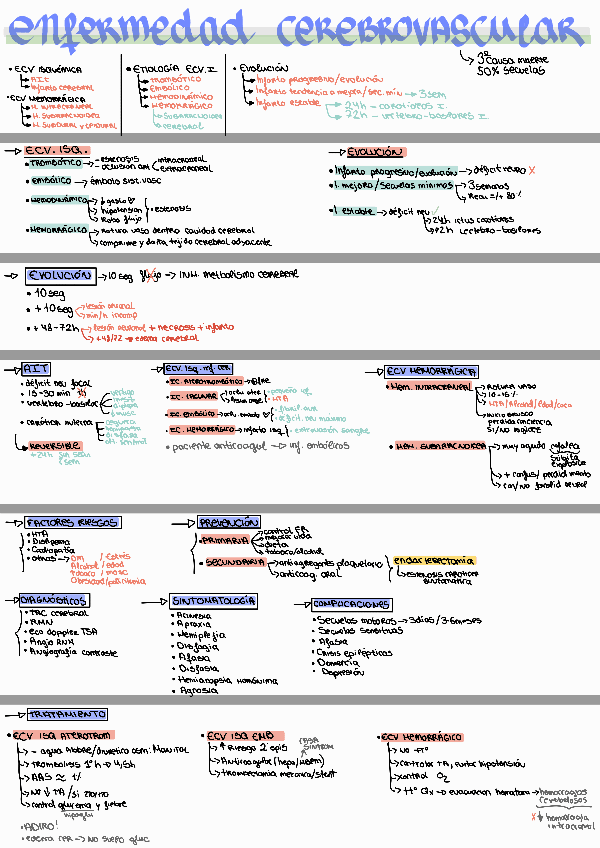 enfermedad CEREBROVASCULAR
3ª causa muerte
50% secuelas
• ECV ISQUÉMICA
AIT
Infarto cerebral
• ECV HEMORRÁGICA
H. INTRACRANEAL
H. SUBARACNOIDEA
H. SUBDURAL y EPIDURAL
• ETIOLOGÍA ECV I
TROMBÓTICO
EMBÓLICO
HEMODINÁMICO
HEMORRÁGICO
SUBARACNOIDEA
CEREBRAL
• EVOLUCIÓN
Infarto progresivo/evolución
Infarto tendencia a mejora/sec. min → 3 sem
Infarto estable → 24h - carotídeos I.
72h - vertebro-basilares I.
→ ECV. ISQ.
• TROMBÓTICO → estenosis
oclusión art
intracraneal
extracraneal
• EMBÓLICO → émbolo sist. vasc
• HEMODINÁMICO → ↓ gasto
hipotensión
Robo flujo
+ estenosis
• HEMORRÁGICO → rotura vaso dentro cavidad cerebral
comprime y daña tejido cerebral adyacente
→ EVOLUCIÓN
• Infarto progresivo/evolución → déficit neuro X
• I. mejora/Secuelas mínimas → 3 semanas
Recu. =/+ 80%
• I estable → déficit neu
24h ictus carotídeos
72h vertebro-basilares
→ EVOLUCIÓN → 10 seg flujo → INH. metabolismo cerebral
• 10 seg
• + 10 seg → lesión neuronal
min/h incomp
• + 48-72h → lesión neuronal + necrosis + infarto
+48/72 → edema cerebral
→ AIT
• déficit neu focal
• 15-30 min
• vertebro-basilar
vértigo
• carótida interna
ceguera
hemiparesia
disfasia
alt. sensitiva
• REVERSIBLE
+ 24h sin secu
1 sem
ECV. Isq. inf. cer.
• I.C. ATEROTROMBÓTICO →
• I.C. LACUNAR → oclu. arte
→ pequeño inf.
→ HTA
• I.C. EMBÓLICO → oclu. embol
→ fibril. aur
→ déficit neu máximo
• I.C. HEMORRÁGICO → infarto isq → extravasación sangre
• paciente anticoagul → inf. embólicos
ECV HEMORRÁGICA
• Hem. INTRACRANEAL → ROTURA VASO
→ 10-15%
→ HTA/Alcohol/Edad/coca
→ inicio brusco
pérdida conciencia
Sí/no rigidez
• HEM. SUBARACNOIDEA → muy aguda cefalea
súbita
explosiva
→ + confus/pérdida conoc
→ con/no focalid neurol
→ FACTORES RIESGOS
• HTA
• Dislipemia
• Cardiopatía
• otros → Dm / Estrés
Alcohol / edad
tabaco / masc
Obesidad/policitemia
→ PREVENCIÓN
• PRIMARIA → control FR
→ mejora vida
→ dieta
→ tabaco/alcohol
• SECUNDARIA → antiagregantes plaquetario
→ anticoag. oral
endarterectomía
→ estenosis carótida
sintomática
DIAGNÓSTICOS
• TAC cerebral
• RMN
• Eco doppler TSA
• Angio RNM
• Angiografía contraste
→ SINTOMATOLOGÍA
• Acinesia
• Apraxia
• Hemiplejia
• Disfagia
• Afasia
• Disfasia
• Hemianopsia homónima
• Agnosia
→ COMPLICACIONES
• Secuelas motoras → 3 días/3-6 meses
• Secuelas sensitivas
• Afasia
• Crisis epilépticas
• Demencia
• Depresión
→ TRATAMIENTO
• ECV ISQ ATEROTROM
→ - agua libre/diurético osm: Manitol
→ trombolisis 1ª h → 4,5h
→ AAS
→ NO ↓ TA/si
→ control glucemia y fiebre
hipoglu
• ADIRO!
• edema cer → NO suero gluc
• ECV ISQ EMB
→ ↑ Riesgo 2º epis
FASE SINTROM
→ Anticoagular (hepa/HBPM)
→ trombectomía mecánica/stent
• ECV HEMORRÁGICO
→ NO tto
→ controlar TA, evitar hipotensión
→ control O2
→ tto Qx → evacuación hematoma → hemorragias
cerebelosas
X ↓ hemorragia
intracraneal